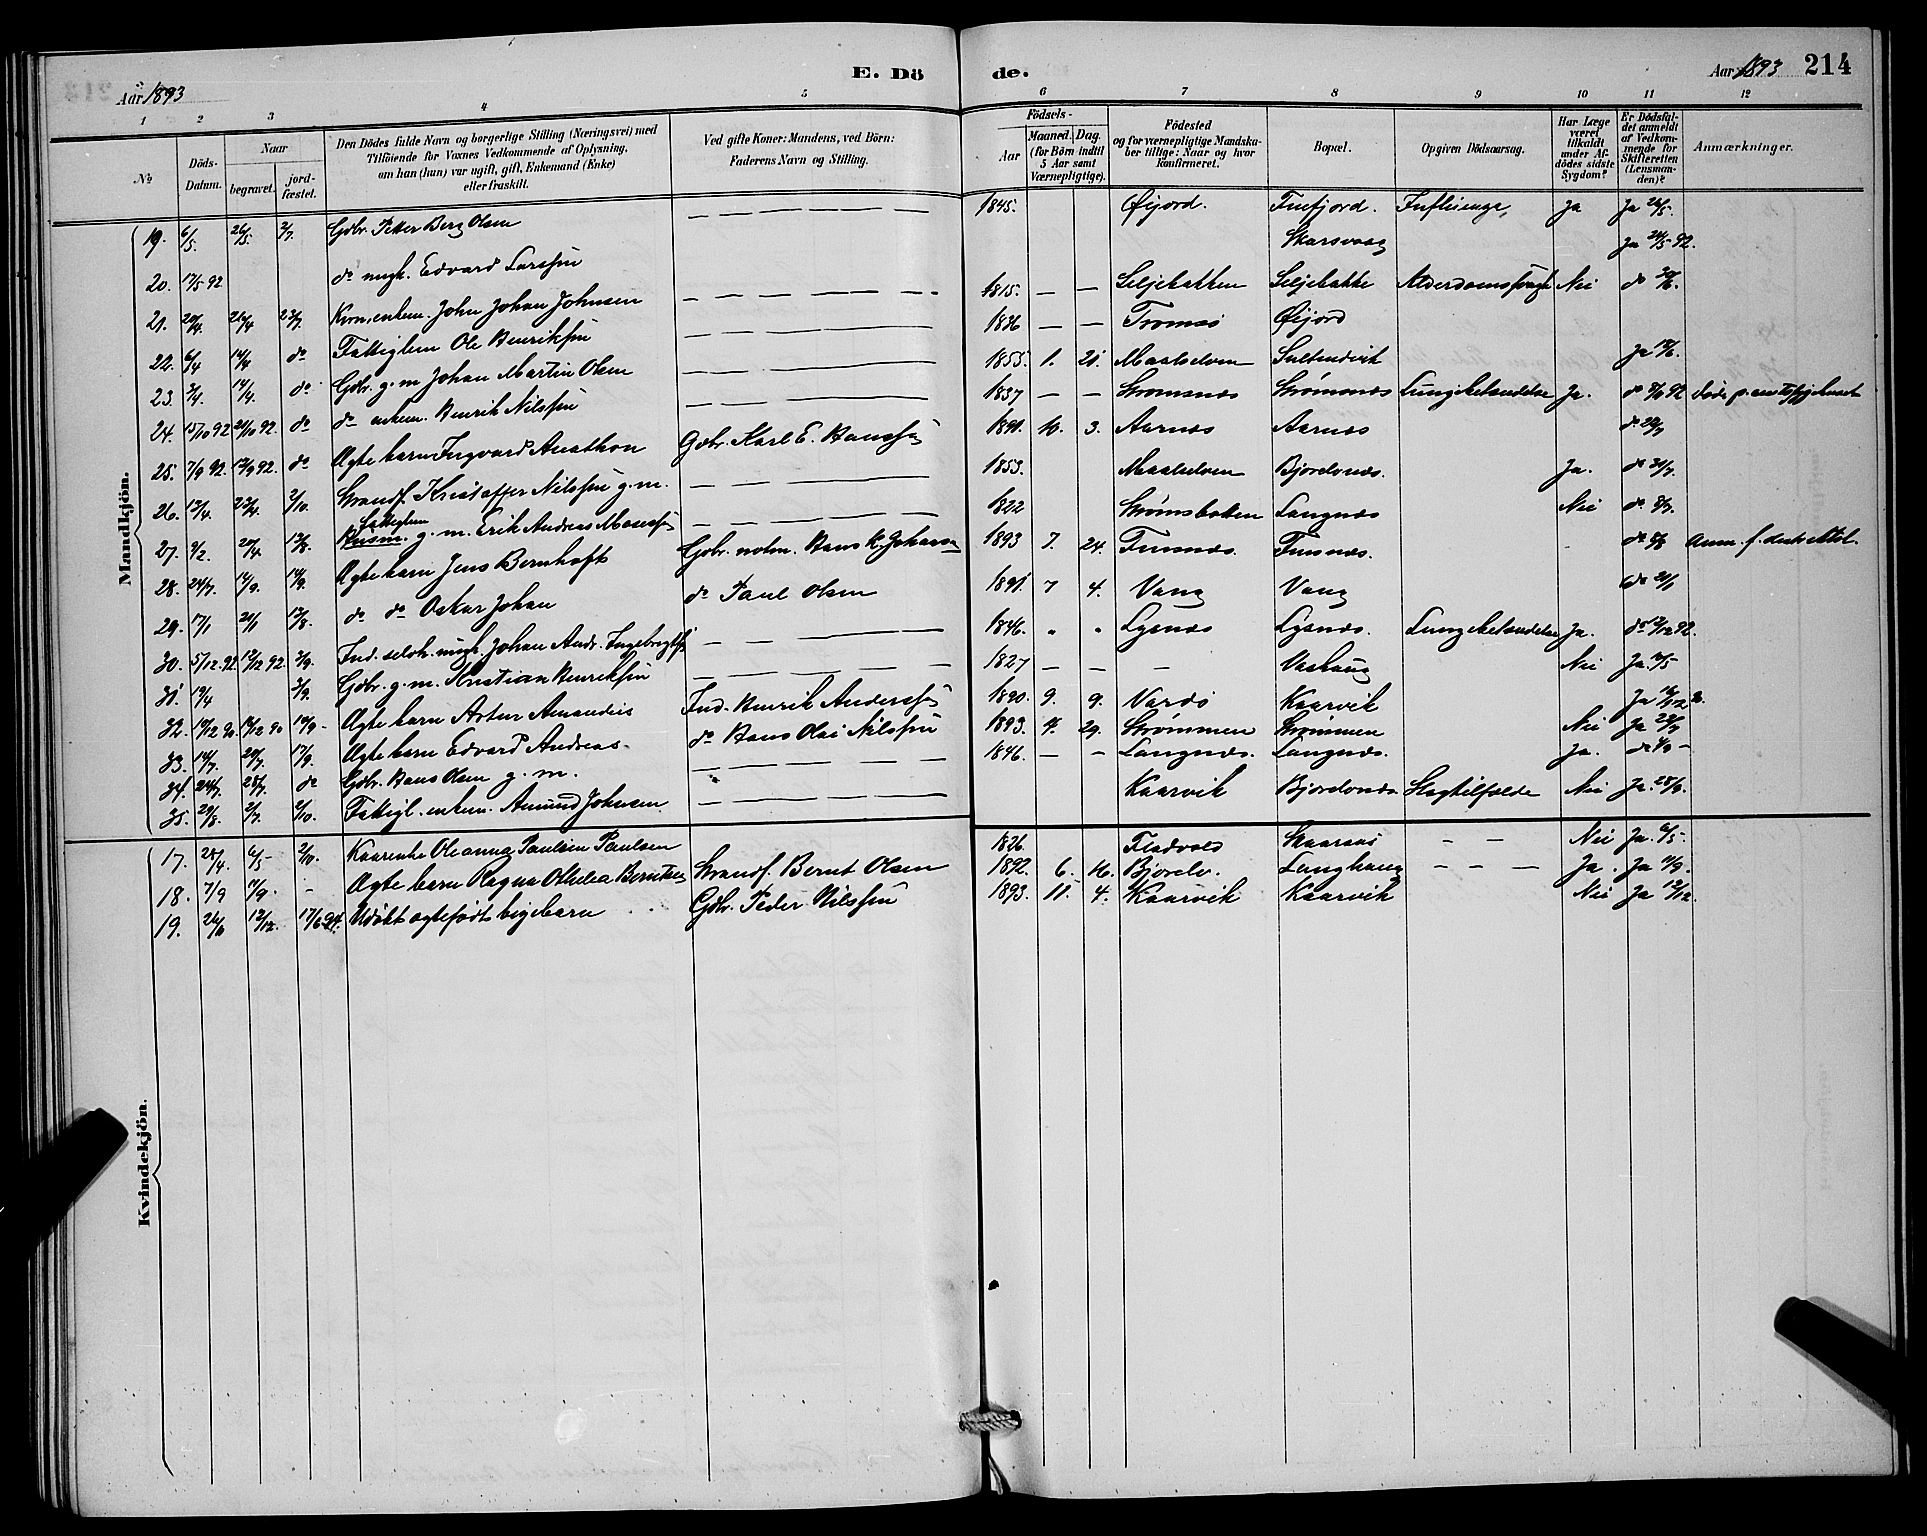 E. Döde.
Aar 1893
Aar 1893 214
1 2 3 4 5 6 7 8 9 10 11 12
No
Döds-Datum.
Naar begravet. jordfæstet.
Den Dödes fulde Navn og borgerlige Stilling (Næringsvei) med Tilföiende for Voxnes Vedkommende af Oplysning, om han (hun) var ugift, gift, Enkemand (Enke) eller fraskilt.
Ved gifte Koner: Mandens, ved Börn: Faderens Navn og Stilling.
Födsels- Aar Maaned. Dag. (for Börn indtil 5 Aar samt Værnepligtige).
Födested og for værnepligtige Mandskaber tillige: Naar og hvor konfirmeret.
Bopæl.
Opgiven Dödsaarsag.
Har Læge været tilkaldt under Afdödes sidste Sygdom?
Er Dödsfaldet anmeldt af Vedkommende for Skifteretten (Lensmanden)?
Anmærkninger.
Mandkjön.
19. 6/5. 26/5. 2/7. Gdbr. Petter Berg Olsen — — — 1845. Øijord. Finfjord. Ja Ja 26/5.
20. 17/5 92 do ungk. Edvard Larssen Skarsvaag Ja 24/5 92.
21. 20/4. 26/4 23/7. enkem. John Johan Johnsen — — — 1815. — — Seljebakken Seljebakke Alderdomssvagh Nei do
22. 6/4 14/4 do Fattiglem Ole Henriksen — — — 1836 — — Tromsø Øijord
23. 3/4. 14/4. do Gdbr. g. m Johan Martin Olsen — — — 1855. 1. 21. Maalselven Sultindvik Ja
24. 15/10 92 21/10 92. do do enkem. Henrik Nilssen — — — 1837 — — Strømsnæs Strømsnæs Lungebetændelse Ja. do 8/10 92
25. 7/9 92. 17/9 92. do Ægte barn Ingvard Anathon Gdbr. Karl E. Hanssen 1891. 10. 3. Aarnæs Aarnæs do
26. 13/4. 23/4. 2/10. Strandf. Kristoffer Nilssen g. m. — — — 1853. Maalselven Bjorelvnæs. Ja. do
27. 9/2. 27/4 13/8. Fattiglem Husm. g. m. Erik Andreas — — — 1822 Strømsbotten Langnæs Nei do 8/7.
28. 24/7. 14/9. 14/9. Ægte barn Jens Bernhoft Gdbr. Hans K. Johansen 1893 7. 24. Finsnæs. Finsnæs. do
29. 17/1 21/1 13/8. do do Oskar Johan do Paul Olsen 1891 7 4. Vang Vang do
30. 5/12 92. 12/12 92. 3/9. Ind. ungk. Johan Andr. Ingebrigtsen — — — 1846. " " Lysnæs Lysnæs. Lungebetændelse Ja. do 12/12 92.
31. 19/4 3/9. Gdbr. g. m. Kristian Henriksen — — — 1827 — — — Vashaug Nei Ja
32. 10/12 90. 19/12 90 10/9 - Ægte barn Artur Amandus Ind. Henrik Anderssen 1890. 9. 9. Vardø Kaarvik Ja
33. 14/7. 20/7. 17/9. Ægte barn Edvard Andreas. do Hans Olai Nilssen 1893. 4. 29. Strømmen Strømmen Nei Ja
34. 24/7. 28/7. do Gdbr. Hans Olsen g. m. — — — 1846. — — Langnæs. Langnæs. Ja. do
35. 29/8. 2/9. 2/10. Fattigl. enkem. Amund Johnsen — — — Kaarvik Bjorelvnæs Slagtilfælde Nei Ja.
Kvindekjön.
17. 28/4. 6/5 - 2/10. Oleanna Paulsen Paulsen 1826. Fladvold Skaarnæs — — Nei Ja 6/5-
18. 7/9 14/9. - Ægte barn Ragna Othelia Berntsen Strandf. Bernt Olsen 1892. 6. 16. Bjorelv. Langhaug — — — Ja. Ja
19. 26/11 12/12. 17/6 94. Udøbt ægtefødt pigebarn Gdbr. Peder Nilssen 1893. 11. 4. Kaarvik Kaarvik Nei Ja 12/12.